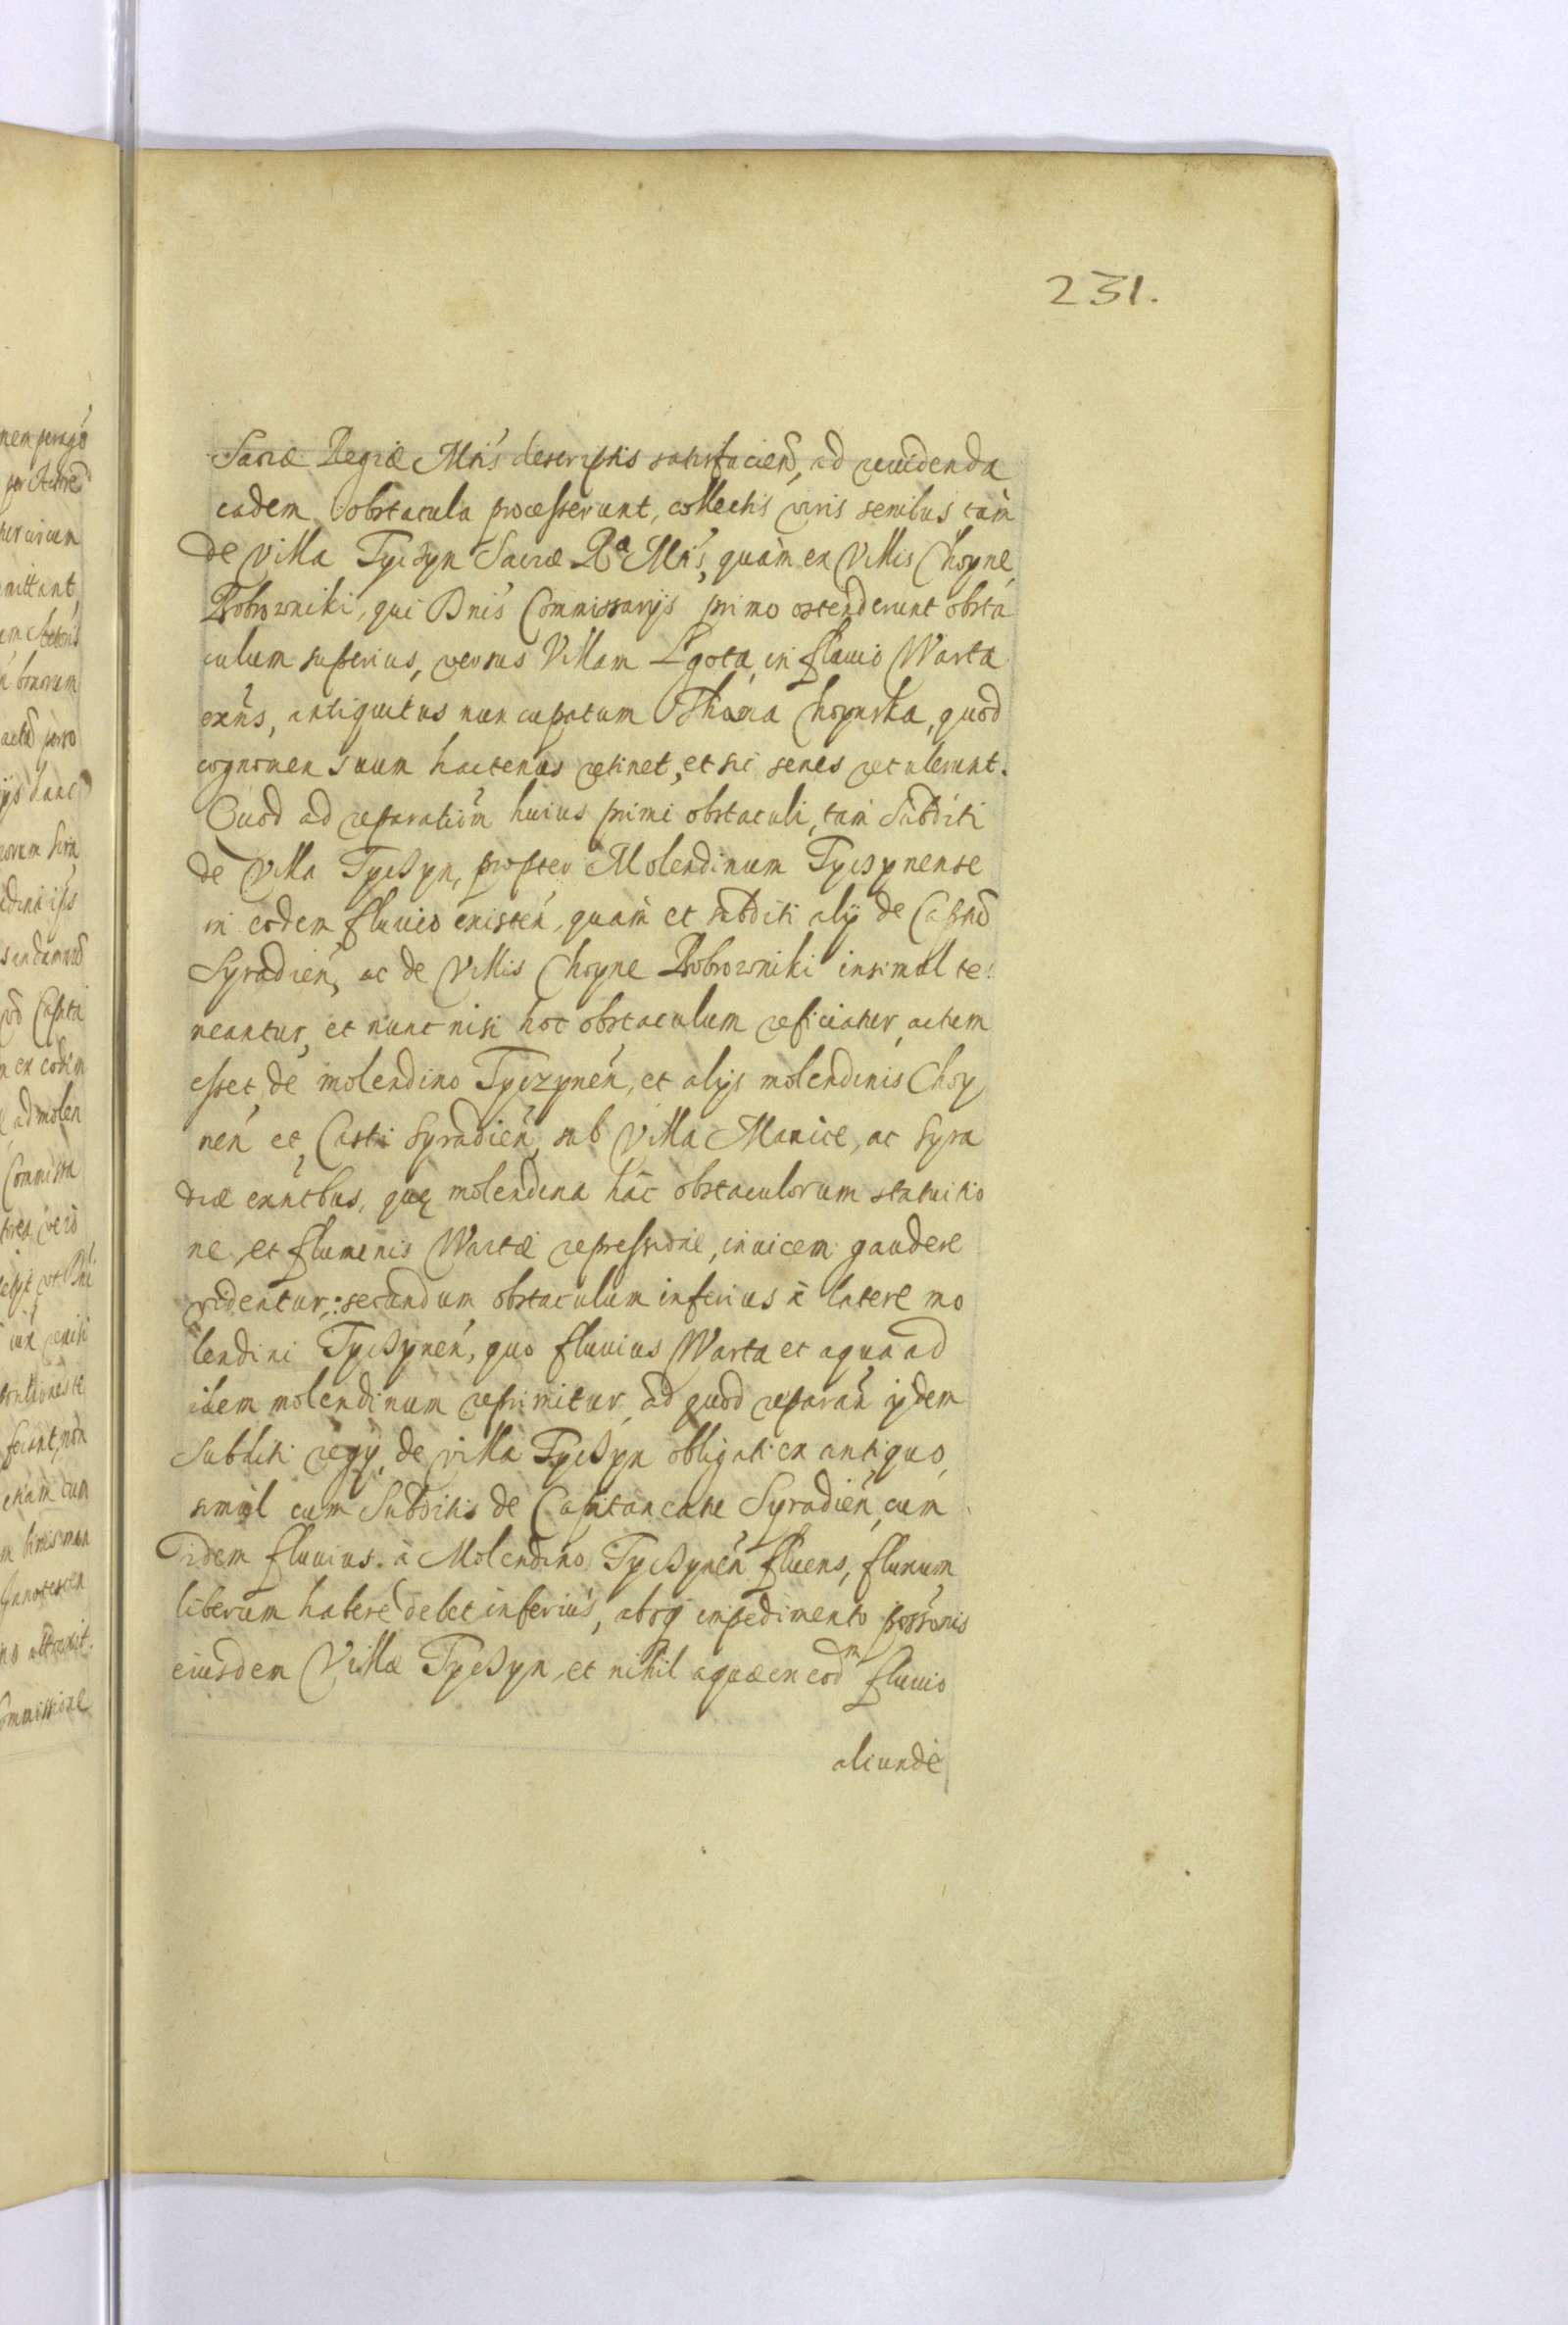 231.
Sacræ Regiæ Mtis descriptis satisfacien, ad reuidenda
eadem obstacula processerunt, collectis viris senibus tam
de Villa Tyczyn Sacræ Ra Mtis, quàm ex Villis Choyne,
Bobrowniki, qui Dnis Commissarijs primo ostenderunt obsta
culum superius, versus Villam Lgota, in fluuio Warta
exñs, antiquitus nuncupatum Thama Choynska, quod
cognomen suum hactenus retinet, et sic senes retulerunt.
Quod ad reparatiom huius primi obstaculi, tam Subditi
de Villa Tyczyn, propter Molendinum Tyczynense
in eodem fluuio existen, quam et subditi alij de Captu
Syradien, ac de Villis Choyne Bobrowniki insimul te
neantur, et nunc nisi hoc obstaculum reficiatur, actum
esset de molendino Tyczynen, et alijs molendinis Choy
nen et Castri Syradien, sub Villa Manice, ac Syra
diæ exñtibus, quę molendina hac obstaculorum statuitio
ne, et fluminis Wartæ repressione, inuicem gaudere
videntur: secundum obstaculum inferius à latere mo
lendini Tyczynen, quo fluuius Warta et aqua ad
idem molendinum reprimitur, ad quod reparan ijdem
Subditi regij, de villa Tyczyn obligati ex antiquo,
simul cum Subditis de Capitaneatu Syradien, cum
idem fluuius à Molendino Tyczynen fluens, flunum
liberum habere debet inferius, absq impedimento possonis
eiusdem Villæ Tyczyn, et nihil aquæ in eodm fluuio
aliunde